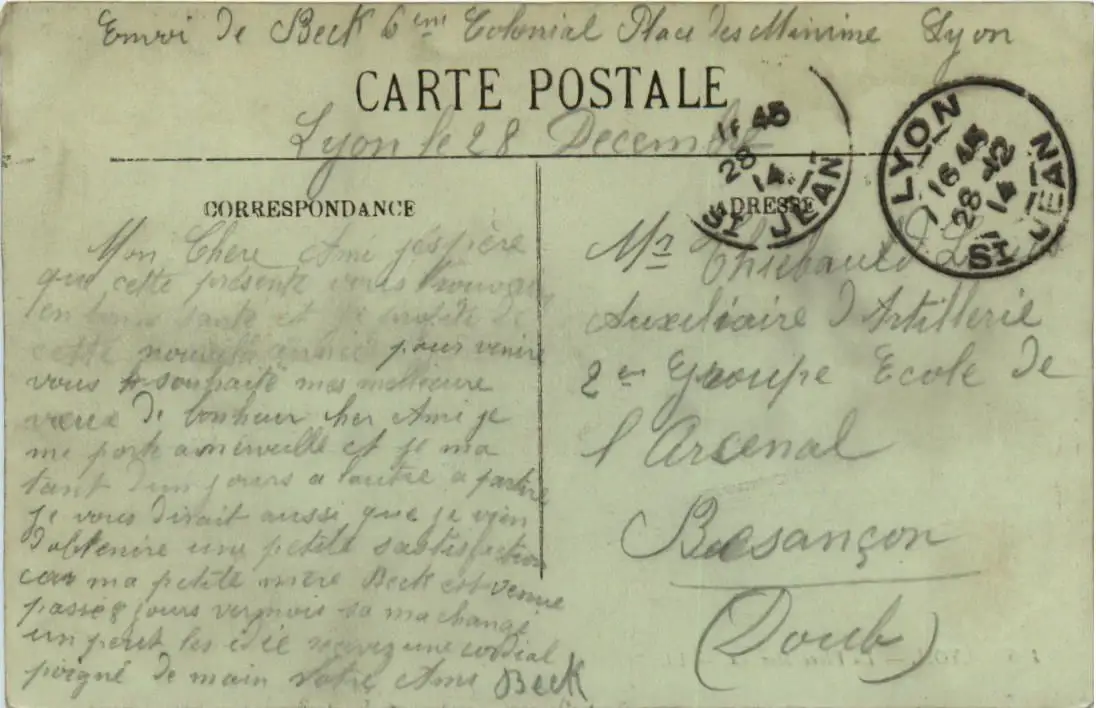 Envoi de Beck 6eme Colonial Place des Minime Lyon
CARTE POSTALE
Lyon le 28 Decembre
16 45
28
14
ST JEAN
LYON
16 45
28 12
14
ST JEAN
CORRESPONDANCE
ADRESSE
Mon Chere Ami j'éspère
que cette présente vous trouvera
en bonne santé et je profite de
cette nouvelle année pour venire
vous souhaité mes meilleure
vœux de bonheur cher Ami je
me porte a merveille et je ma
tant d'un jours a l'autre a partire
je vous dirait aussi que je vien
d'obtenire une petite sastisfaction
car ma petite mère Beck est venue
passé 8 jours ver mois sa ma changé
un peut les idée recevez une cordial
poigné de main Votre Ami Beck
Mr Thiebaud Louis
Auxiliaire d'Artillerie
2em Groupe Ecole de
l'Arsenal
Besançon
(Doub)